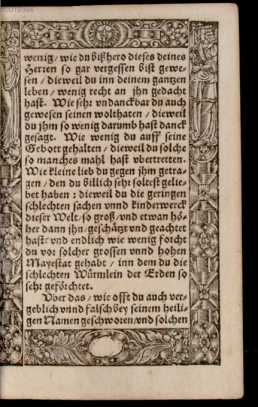 wenig / wie du bißhero dieses deines
Herren so gar vergessen bist gewe-
sen / dieweil du inn deinem gantzen
leben / wenig recht an jhn gedacht
hast. Wie sehr vndanckbar du auch
gewesen seinen wolthaten / dieweil
du jhm so wenig darumb hast danck
gesagt. Wie wenig du auff seine
Gebott gehalten / dieweil du solche
so manches mahl hast vbertretten.
Wie kleine lieb du gegen jhm getra-
gen / den du billich sehr soltest gelie-
bet haben : dieweil du die geringen
schlechten sachen vnnd kinderwerck
dieser Welt / so groß / vnd etwan hö-
her dann jhn / geschätzt vnd geachtet
hast / vnd endlich wie wenig forcht
du vor solcher grossen vnnd hohen
Mayestat gehabt / inn dem du die
schlechten Würmlein der Erden so
sehr geförchtet.
Vber das / wie offt du auch ver-
geblich vnnd falsch bey seinem heili-
gen Namen geschworen / vnd solchen